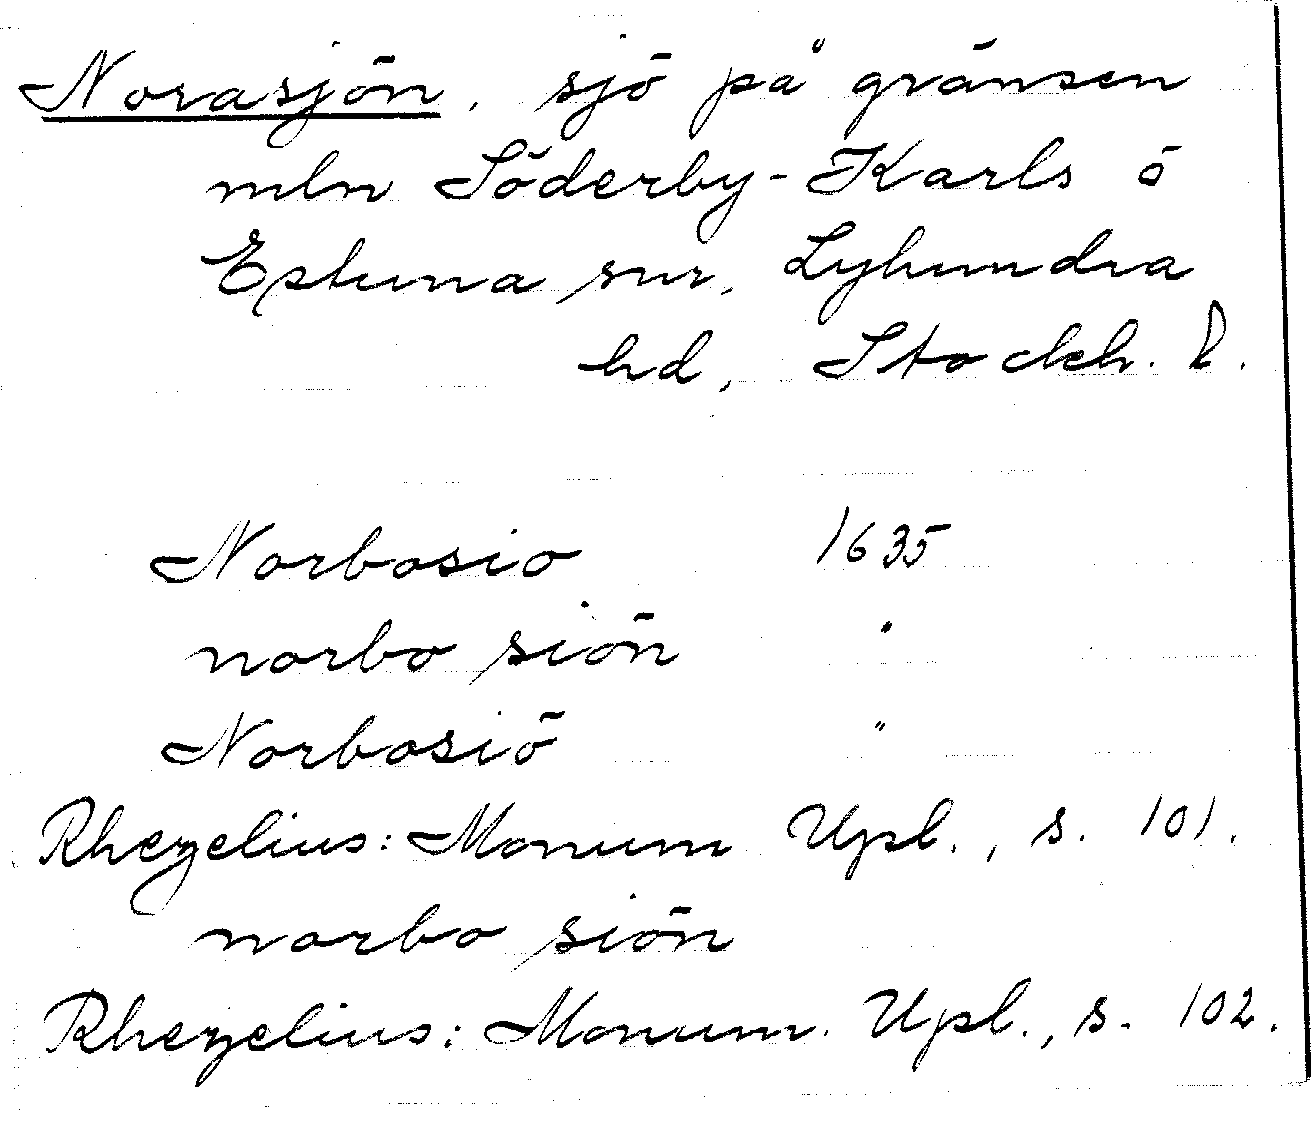 Norasjön, sjö på gränsen
mln Söderby-Karls o
Estuna snr, Lyhundra
hd, Stockh. l.
Norbosio 1635
norbo siön "
Norbosiö "
Rhezelius: Monum Upl., s. 101.
norbo siön
Rhezelius: Monum. Upl., s. 102.